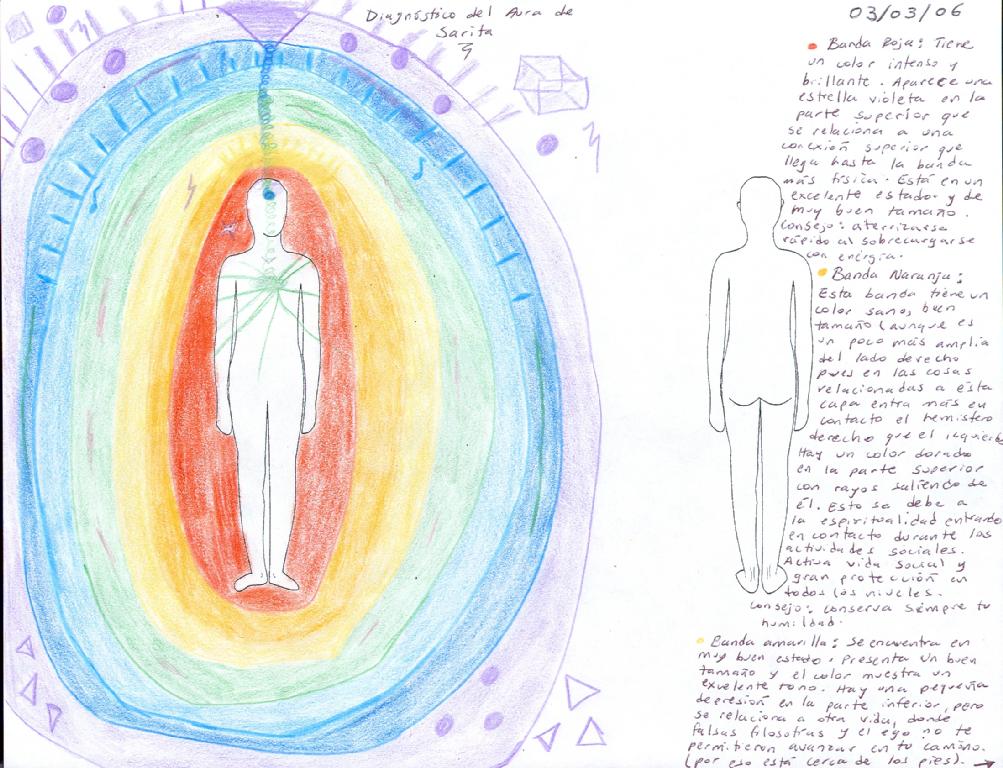 Diagnóstico del Aura de
Sarita
03/03/06
Banda Roja: Tiene
un color intenso y
brillante. Aparece una
estrella violeta en la
parte superior que
se relaciona a una
conexión superior que
llega hasta la banda
más física. Está en un
excelente estado y de
muy buen tamaño.
Consejo: aterrizarse
rápido al sobrecargarse
con energía.
Banda Naranja:
Esta banda tiene un
color sano, buen
tamaño (aunque es
un poco más amplia
del lado derecho
pues en las cosas
relacionadas a ésta
capa entra más en
contacto el hemisferio
derecho que el izquierdo
Hay un color dorado
en la parte superior
con rayos saliendo de
él. Esto se debe a
la espiritualidad entrando
en contacto durante las
actividades sociales.
Activa vida social y
gran protección en
todos los niveles.
Consejo: conserva siempre tu
humildad.
Banda amarilla: Se encuentra en
muy buen estado. Presenta un buen
tamaño y el color muestra un
excelente tono. Hay una pequeña
depresión en la parte inferior, pero
se relaciona a otra vida, donde
falsas filosofías y el ego no te
permitieron avanzar en tu camino.
(por eso está cerca de los pies). →